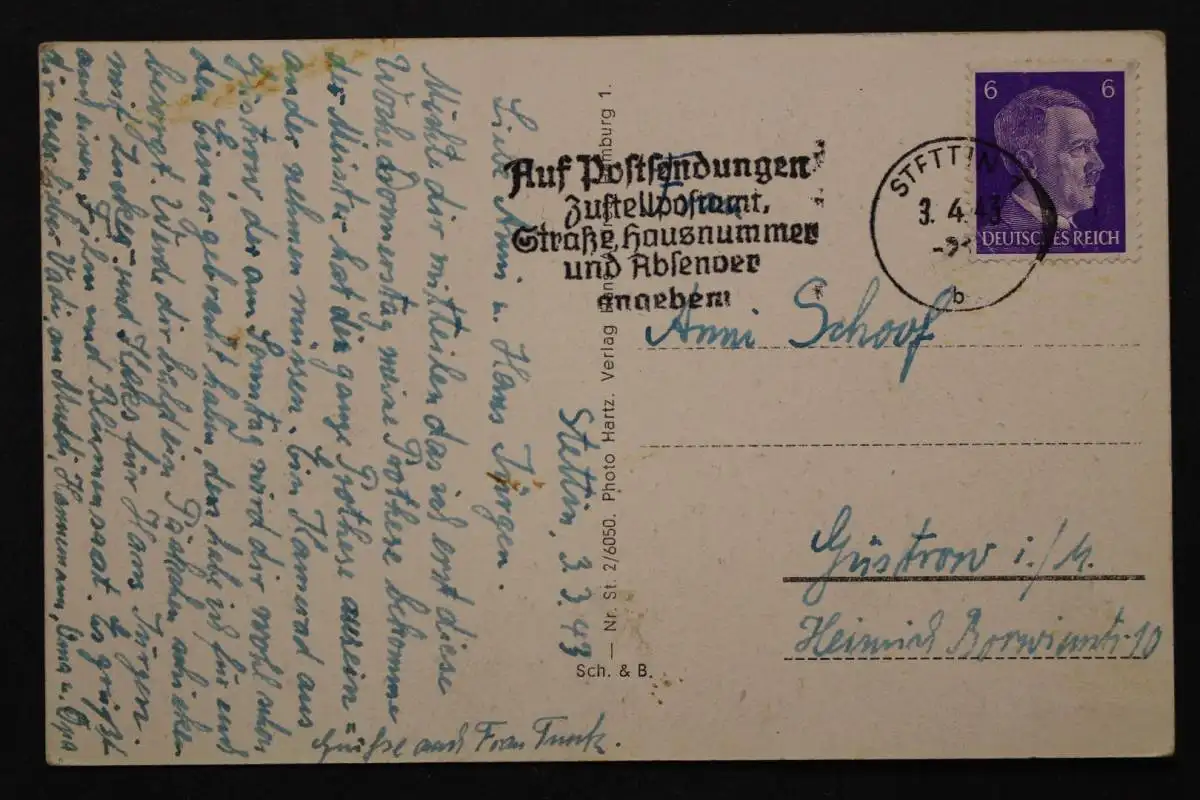 Stettin, 3 3. 43
Liebe Anni u. Hans Jürgen.
Möchte dir mitteilen das ich erst diese
Woche Donnerstag meine Prothese bekomme
der Meister hat die ganze Prothese ausein=
ander nehmen müssen. Ein Kamerad aus
Güstrow, der am Sonntag wird dir wohl schon
den Eimer gebracht haben, dem habe ich für euch
besorgt. Werde dir bald ein Päckchen schicken
mit Zucker und Keks für Hans Jürgen.
auch einen und Blumensaat. Es grüßt
dir euer lieber Vadi, an Mutti, Hannemann, Oma u. Opa.
Grüße auch Frau Funk.
Nr. St. 2/6050. Photo Hartz. Verlag Hans mburg 1.
Sch. & B.
Auf Postsendungen
Zustellpostamt,
Straße, Hausnummer
und Absender
angeben
STETTIN 1
3. 4. 43
b
6 6
DEUTSCHES REICH
Frau
Anni Schoof
Güstrow i./M.
Heinrich Borwinstr. 10